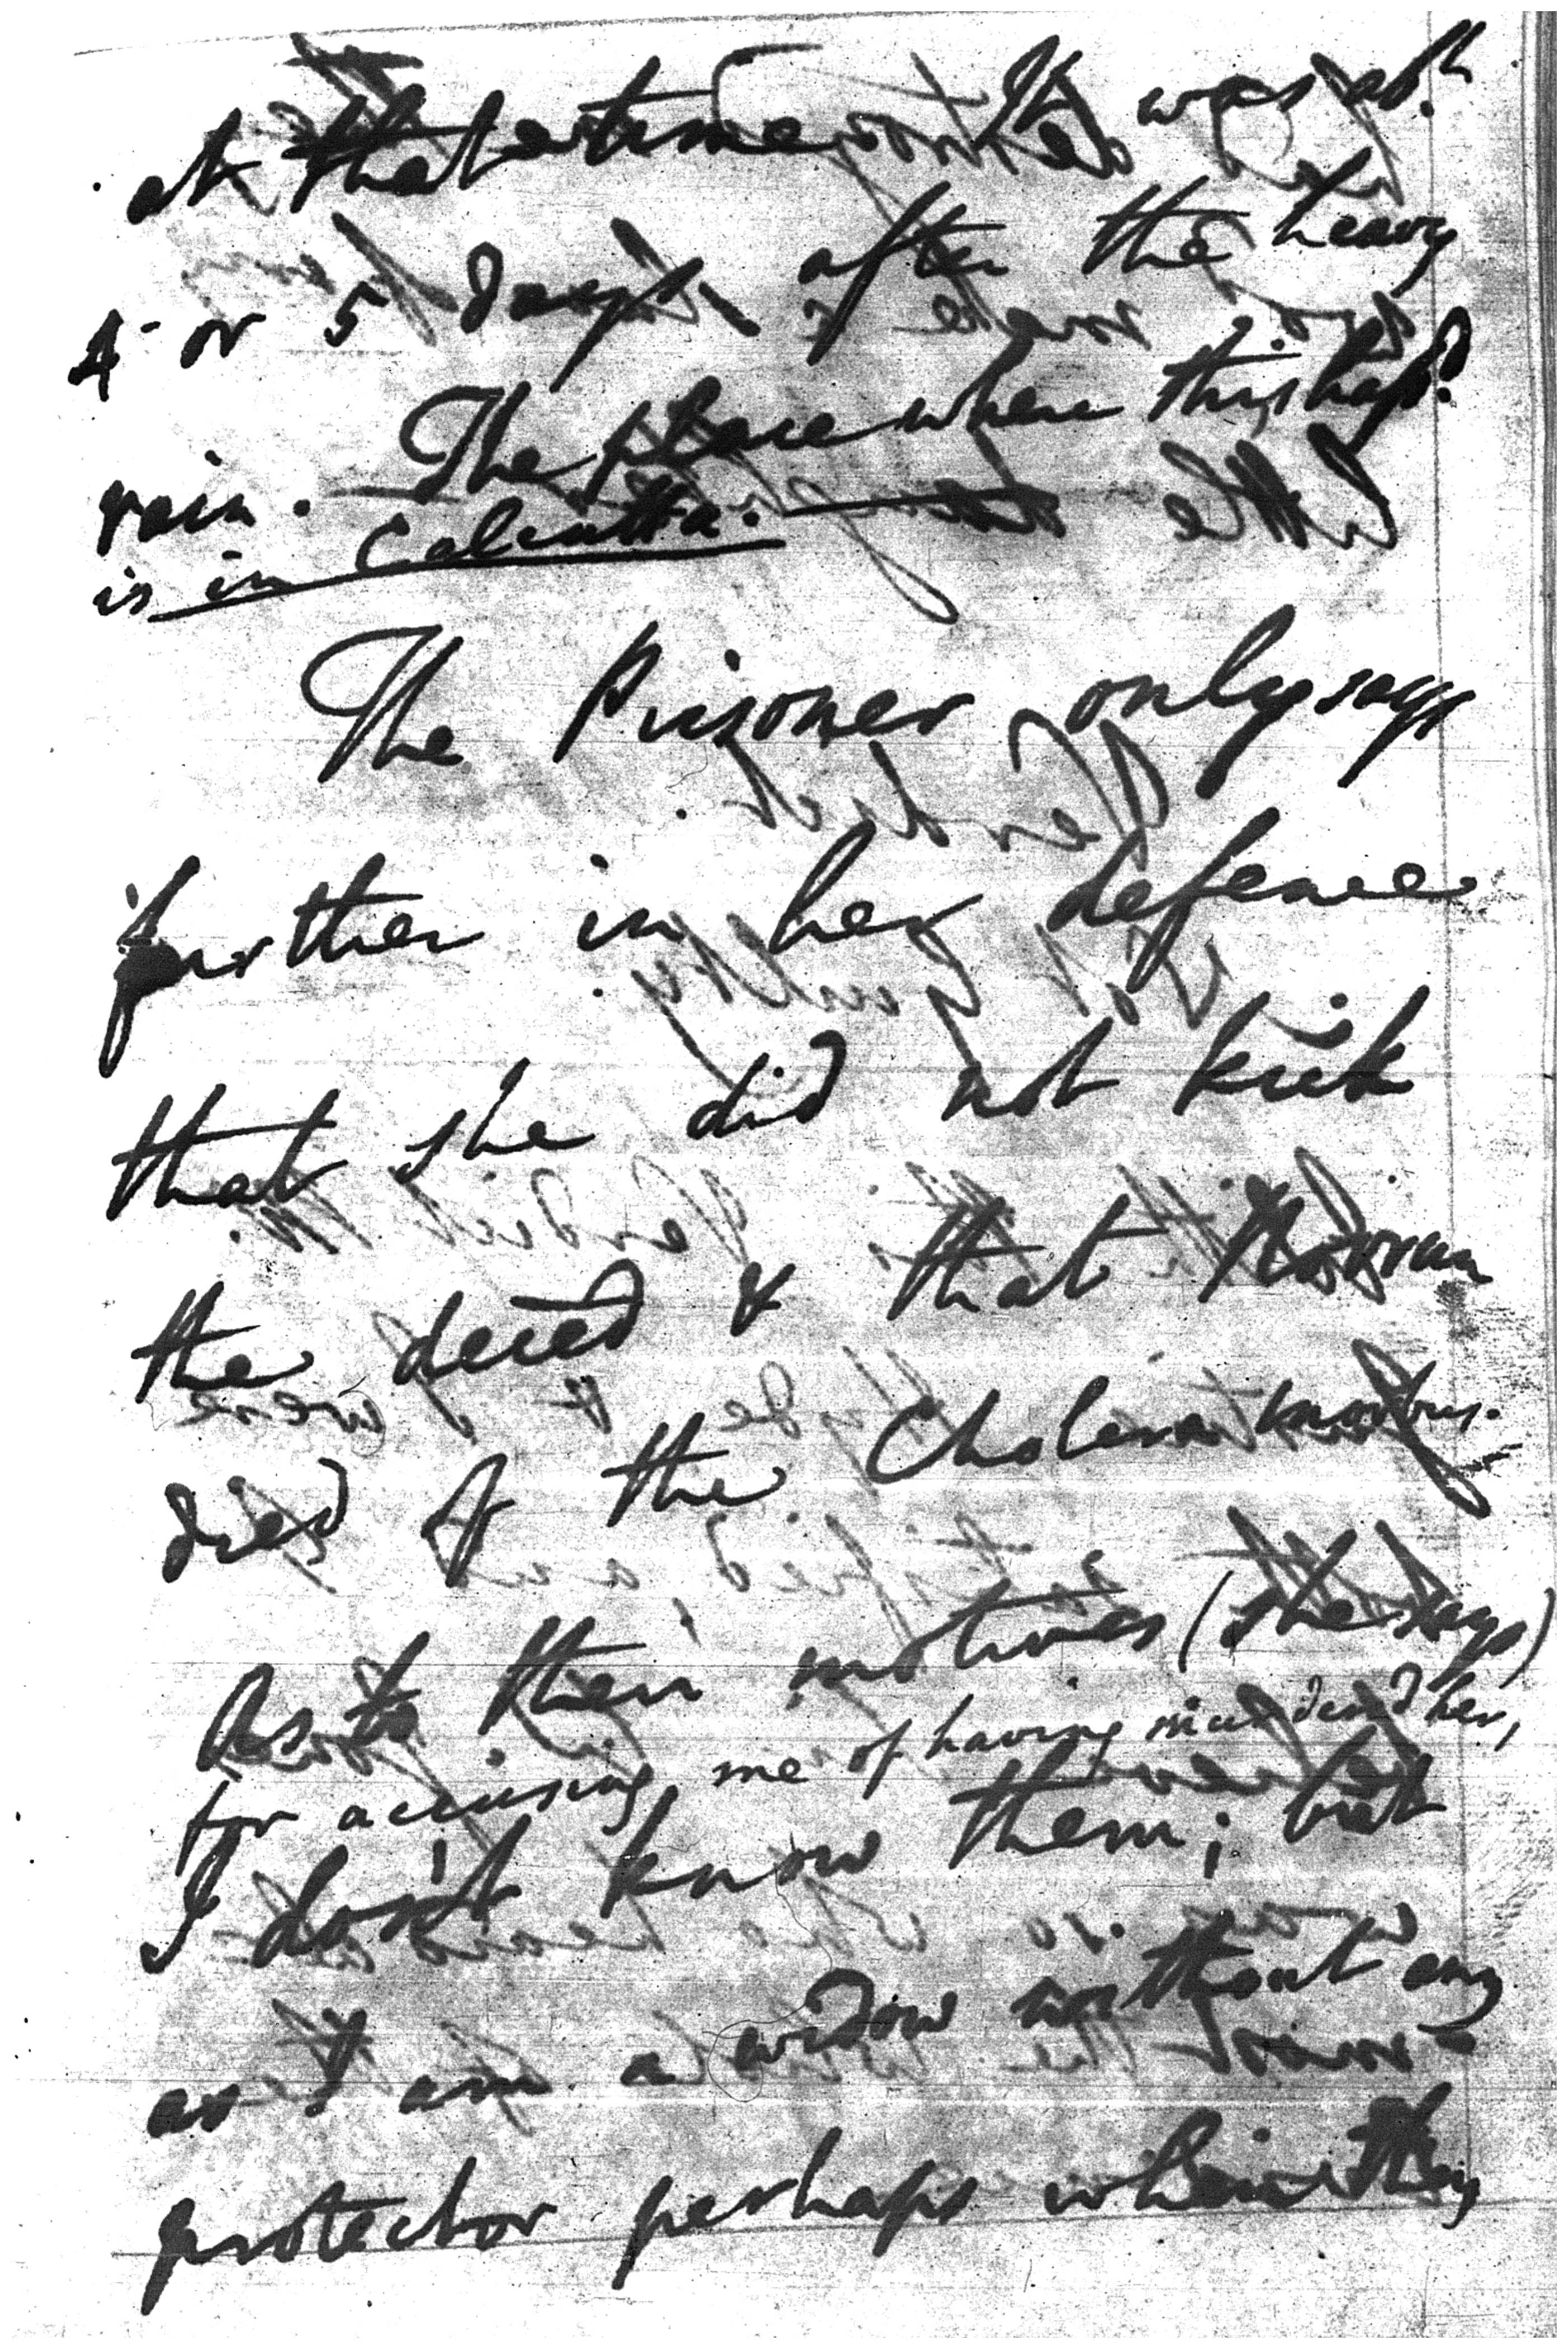 at that time. It was abt
4 or 5 days after the heavy
rain. The place where this happd
is in Calcutta.
The Prisoner only says
further in her defence
that she did not kick
the deced & that
died of the Cholera morbus.
As to their motives (she says)
for accusing me of having murdered her,
I don't know them; but
as I am a widow without any
protector perhaps they